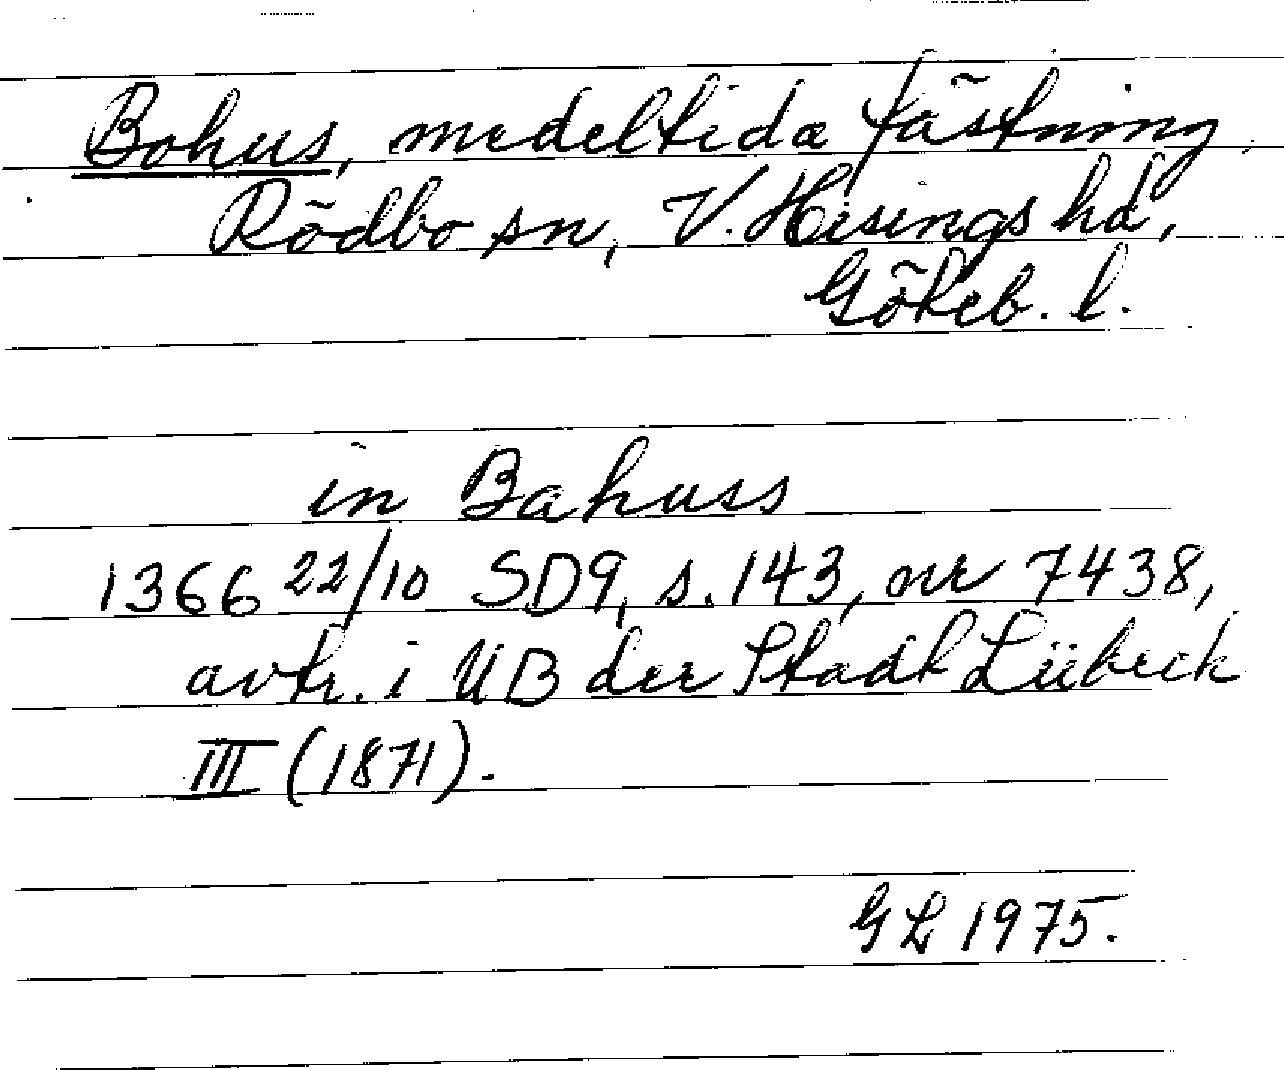 Bohus, medeltida fästning,
Rödbo sn, V. Hisings hd,
Göteb. l.
in Bahuss
1366 22/10 SD9, s. 143, nr 7438,
avtr. i UB der Stadt Lübeck
III (1871).
GL 1975.